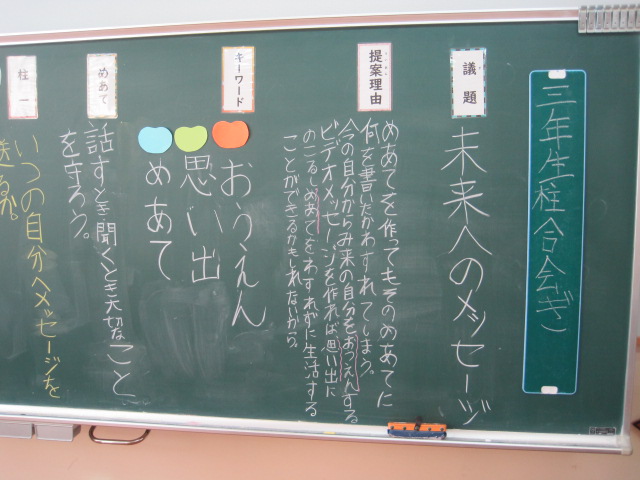 三年生柱合会ぎ
議題
未来へのメッセージ
提案理由
めあてを作ってもそのめあてに
何を書いたかわすれてしまう。
今の自分からみ来の自分をおうえんする
ビデオメッセージを作れば思い出に
のこるしめあてをわすれずに生活する
ことができるかもしれないから。
キーワード
おうえん
思い出
めあて
めあて
話すとき聞くとき大切なこと
を守ろう。
柱一
いつの自分へメッセージを
送るか。